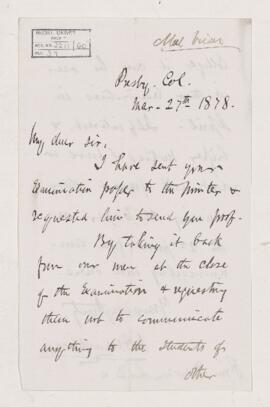 McGILL UNIVERSITY
ACC. NO.
REF.
Presby. Col.
Mar. 27th 1878.
My dear Sir,
I have sent your
Examination paper to the Printer &
requested him to send you proof.
By taking it back
from our men at the close
of the Examination & requesting
them not to communicate
anything to the Students of
other